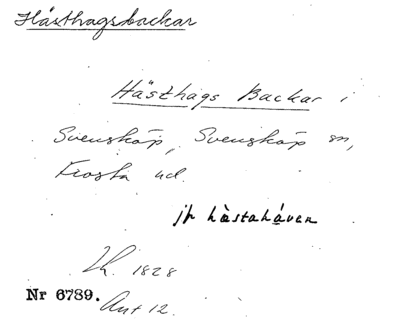 Hästhagsbackar
Hästhags Backar i
Svensköp, Svensköp sn,
Frosta hd.
jfr hästahåven
Lh. 1828
Nr 6789.
Ant 12.